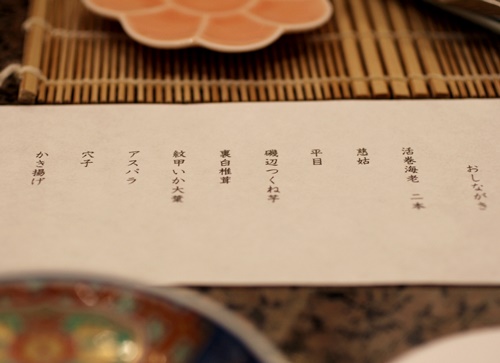 おしながき
活巻海老　二本
慈姑
平目
磯辺つくね芋
裏白椎茸
紋甲いか大葉
アスパラ
穴子
かき揚げ